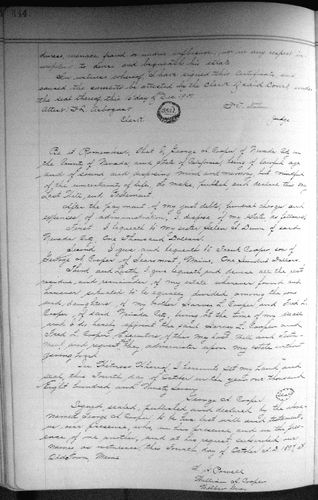 444
duress, menace fraud or undue influence, nor in any respect in-
competent to devise and bequeath his estate.
In witness whereof, I have signed this Certificate, and
caused the same to be attested by the Clerk of said Court under
the seal thereof, this 15 day of
Attest
Clerk.
Judge
Be it Remembered, That I, George A. Cooper of Nevada City in
the County of Nevada and State of California, being of lawful age
and of sound and disposing mind and memory, but mindful
of the uncertainty of life, do make, publish and declare this my
Last Will and Testament.
After the payment of my just debts, funeral charges and
expenses of administration, I dispose of my estate as follows,
First I bequeath to my sister Helen A. Dunn of said
Nevada City One Thousand Dollars.
Second I give and bequeath to Frank Cooper son of
George A. Cooper of Searsmont, Maine, One Hundred Dollars.
Third and Lastly I give bequeath and devise all the rest
residue and remainder of my estate wherever found and
however situated to be equally divided among the sons
and daughters of my brother Harvey L. Cooper and Fred L.
Cooper of said Nevada City, living at the time of my death
and I do hereby appoint the said Harvey L. Cooper and
Fred L. Cooper, Executors of this my last Will and Testa-
ment and request they administer upon my estate without
giving bond.
In Witness Whereof I hereunto set my hand and
seal, this Fourth day of October in the year one thousand
eight hundred and Ninety Seven.
George A. Cooper
Signed sealed, published and declared by the above
named George A. Cooper to be his last will and testament,
in our presence, who in his presence, and in the pres-
ence of one another, and at his request subscribed our
names as witnesses this fourth day of October A.D. 1897 at
Oldtown, Maine
William H. Cooper